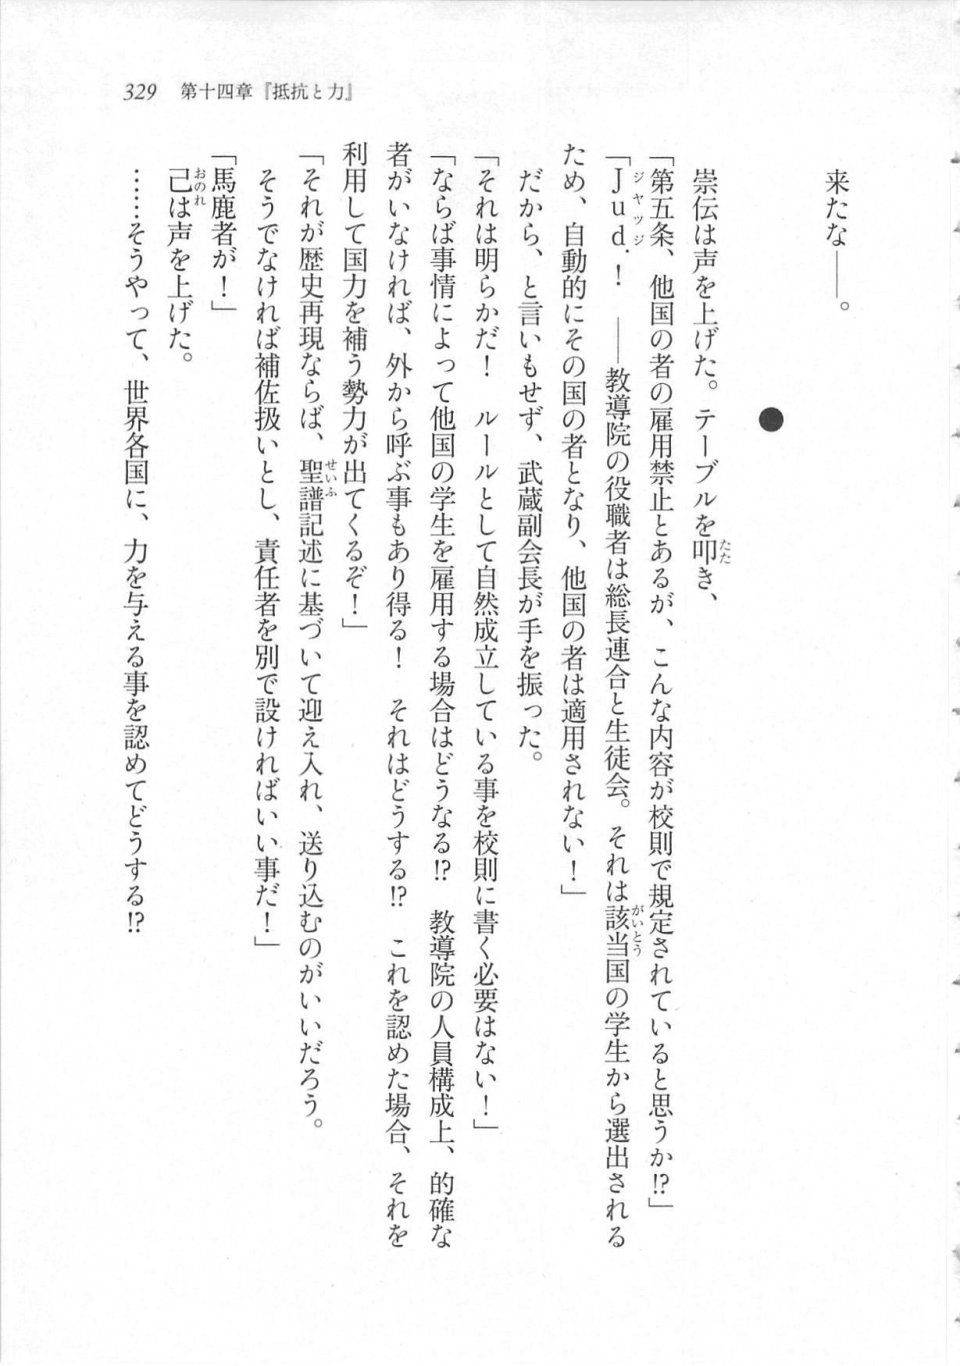 329 第十四章『抵抗と力』
来たな――。
●
崇伝は声を上げた。テーブルを叩き、
「第五条、他国の者の雇用禁止とあるが、こんな内容が校則で規定されていると思うか!?」
「Jud.！　――教導院の役職者は総長連合と生徒会。それは該当国の学生から選出される
ため、自動的にその国の者となり、他国の者は適用されない！」
だから、と言いもせず、武蔵副会長が手を振った。
「それは明らかだ！　ルールとして自然成立している事を校則に書く必要はない！」
「ならば事情によって他国の学生を雇用する場合はどうなる!?　教導院の人員構成上、的確な
者がいなければ、外から呼ぶ事もあり得る！　それはどうする!?　これを認めた場合、それを
利用して国力を補う勢力が出てくるぞ！」
「それが歴史再現ならば、聖譜記述に基づいて迎え入れ、送り込むのがいいだろう。
そうでなければ補佐扱いとし、責任者を別で設ければいい事だ！」
「馬鹿者が！」
己は声を上げた。
……そうやって、世界各国に、力を与える事を認めてどうする!?
たた
ジャッジ
がいとう
せいふ
おのれ